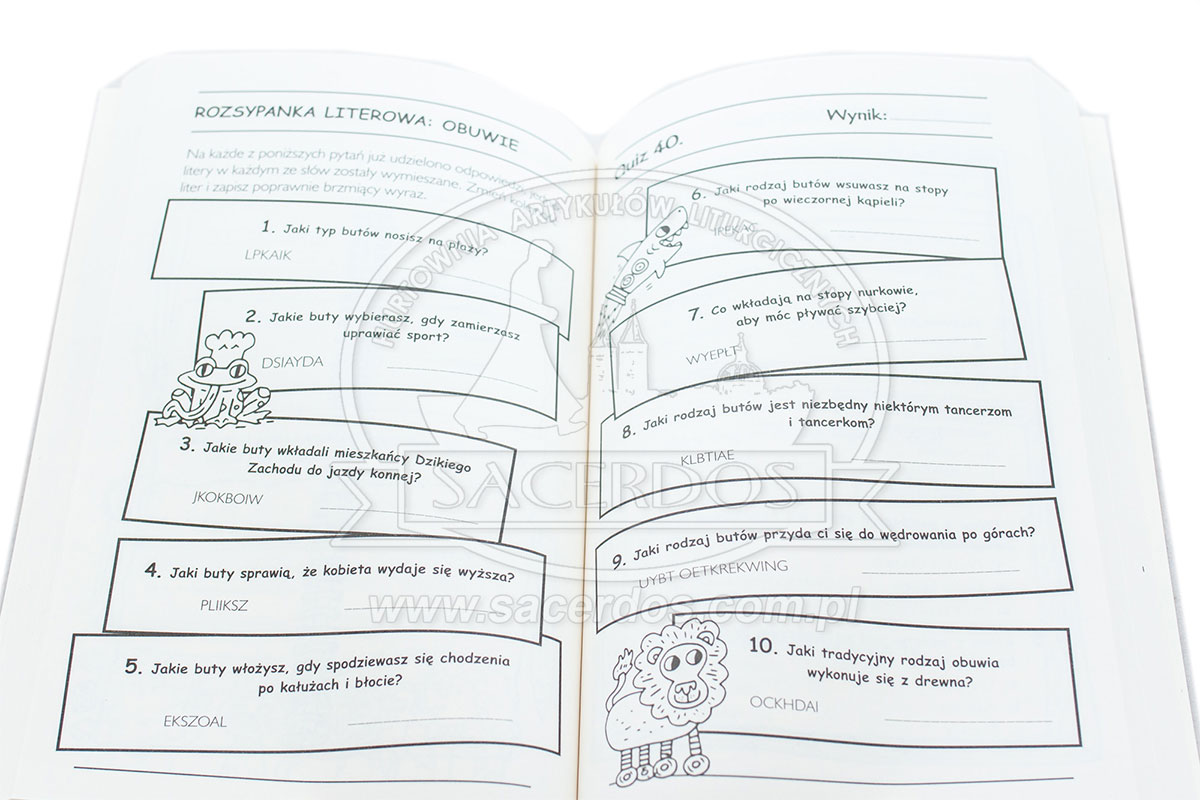 ROZSYPANKA LITEROWA: OBUWIE
Na każde z poniższych pytań już udzielono
litery w każdym ze słów zostały wymieszane.
liter i zapisz poprawnie brzmiący wyraz.
1. Jaki typ butów nosisz na plaży?
LPKAIK
2. Jakie buty wybierasz, gdy zamierzasz
uprawiać sport?
DSIAYDA
3. Jakie buty wkładali mieszkańcy Dzikiego
Zachodu do jazdy konnej?
JKOKBOIW
4. Jaki buty sprawią, że kobieta wydaje się wyższa?
PLIIKSZ
5. Jakie buty włożysz, gdy spodziewasz się chodzenia
po kałużach i błocie?
EKSZOAL
Quiz 40.
Wynik:
6. Jaki rodzaj butów wsuwasz na stopy
po wieczornej kąpieli?
7. Co wkładają na stopy nurkowie,
aby móc pływać szybciej?
WYEPŁT
8. Jaki rodzaj butów jest niezbędny niektórym tancerzom
i tancerkom?
KLBTIAE
9. Jaki rodzaj butów przyda ci się do wędrowania po górach?
UYBT OETKREKWING
10. Jaki tradycyjny rodzaj obuwia
wykonuje się z drewna?
OCKHDAI
HURTOWNIA ARTYKUŁÓW LITURGICZNYCH
SACERDOS
www.sacerdos.com.pl